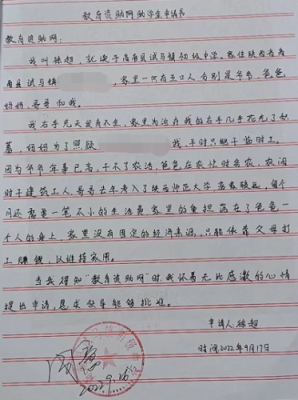 教育资助网助学生申请书
教育资助网:
我叫徐超,就读于商南县试马镇初级中学。家住陕西省商
南县试马镇 ,家里一共有五口人分别是爷爷、爸爸
妈妈、哥哥和我。
我右手先天发育不全,家里为治疗我的右手几乎花光了积
蓄,妈妈为了照顾 我,平时只能干临时工。
因为爷爷年事已高,干不了农活,爸爸在农忙时务农,农闲
时干建筑工人。哥哥去年考入了陕西师范大学离家较远,每个
月还需要一笔不小的生活费,家里的重担落在了爸爸一
个人的身上,家里没有固定的经济来源,只能依靠父母打
工赚钱,以维持家用。
当我得知“教育资助网”时,我怀着无比感激的心情
提出申请,恳求领导能够批准。
申请人:徐超
时间:2022年9月17日
2022.9.26